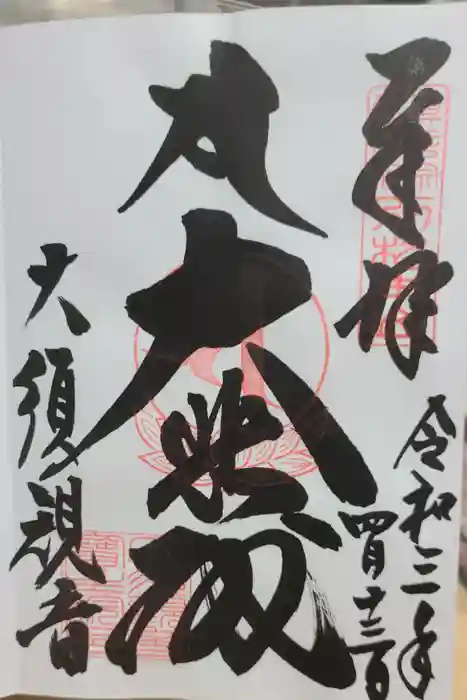 奉拝
令和三年
四月十三日
大悲殿
大須観音